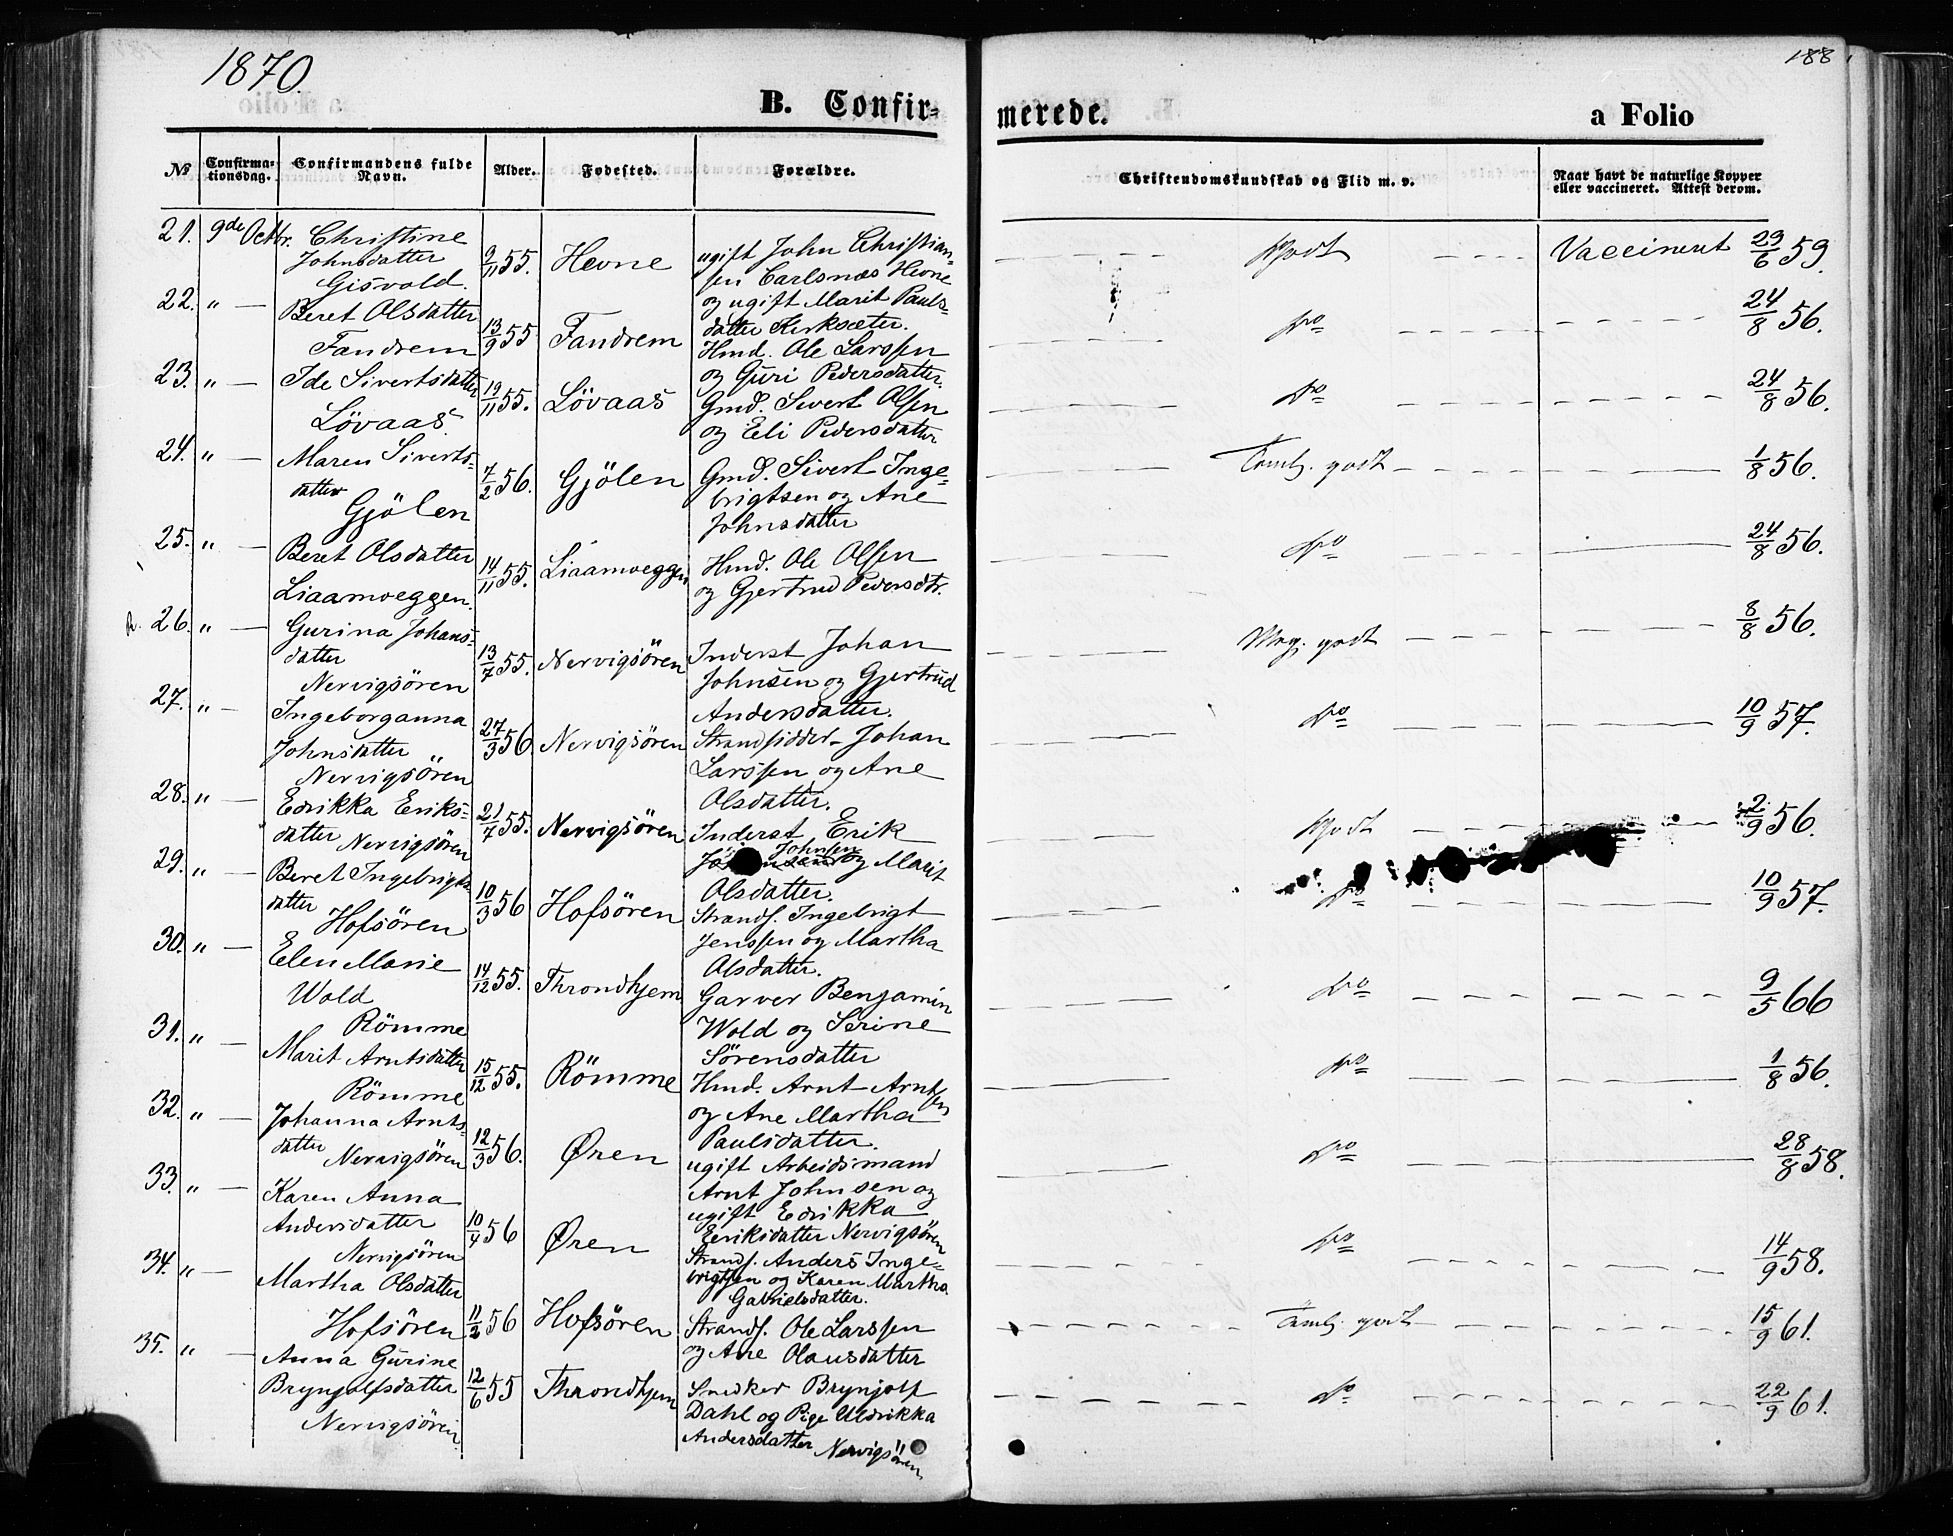 1870.
188
B. Confir-
merede.
a Folio
No
Confirma-
tionsdag.
Confirmandens fulde
Navn.
Alder.
Fødested.
Forældre.
Christendomskundskab og Flid m. v.
Naar havt de naturlige Kopper
eller vaccineret. Attest derom.
21. 9de Octbr. Christine
Johnsdatter
Gisvold.
9/11 55. Hevne
ugift John Christian-
sen Carlsnæs Hevne
og ugift Marit Pauls-
datter Kirksæter.
Godt
Vaccineret 29/6 59.
22. " — Beret Olsdatter
Fandrem
13/9 55 Fandrem
Hmd. Ole Larssen
og Guri Pedersdatter.
do
24/8 56.
23. " — Ide Sivertsdatter
Lövaas
19/11 55. Lövaas
Gmd. Sivert Olsen
og Eli Pedersdatter
do
24/8 56.
24. " — Maren Siverts-
datter
Gjölen
7/2 56. Gjölen
Gmd. Sivert Inge-
brigtsen og Ane
Johnsdatter
Temlg. godt
1/8 56.
25. " — Beret Olsdatter
Liaamveggen.
14/11 55. Liaamveggen
Hmd. Ole Olsen
og Gjertrud Pedersdtr.
do
24/8 56.
26. " — Gurina Johans-
datter
Nervigsören
13/7 55. Nervigsören
Inderst Johan
Johnsen og Gjertrud
Andersdatter.
Meg. godt
8/8 56.
27. " — Ingeborganna
Johnsdatter
Nervigsören
27/3 56 Nervigsören
Strandsidder Johan
Larssen og Ane
Olsdatter.
do
10/9 57.
28. " — Edrikka Eriks-
datter Nervigsören
21/7 55. Nervigsören
Inderst Erik
Johnsen
og Marit
Olsdatter.
Godt
2/9 56.
29. " — Beret Ingebrigts-
datter
Hofsören
10/3 56 Hofsören
Strands. Ingebrigt
Jenssen og Martha
Olsdatter.
do
10/9 57.
30. " — Elen Marie
Wold
Römme
14/12 55. Throndhjem
Garver Benjamin
Wold og Serine
Sörensdatter
do
9/5 66
31. " — Marit Arntsdatter
Römme
15/12 55. Römme
Hmd. Arnt Arntsen
og Ane Martha
Paulsdatter.
do
1/8 56.
32. " — Johanna Arnts-
datter
Nervigsören
12/3 56. Øren
ugift Arbeidsmand
Arnt Johnsen og
ugift Edrikka
Eeriksdatter Nervigsören
do
28/8 58.
33. " — Karen Anna
Andersdatter
Nervigsören
10/4 56 Øren
Strands. Anders Inge-
brigtsen og Karen Martha
Gabrielsdatter.
do
14/9 58.
34. " — Martha Olsdatter
Hofsören
11/2 56 Hofsören
Strands. Ole Larssen
og Ane Olausdatter
Temlg. godt
15/9 61.
35. " — Anna Gurine
Brynjolfsdatter
Nervigsören
12/6 55 Throndhjem
Snedker Brynjolf
Dahl og Pige Uldrikka
Andersdatter Nervigsören
do
22/9 61.